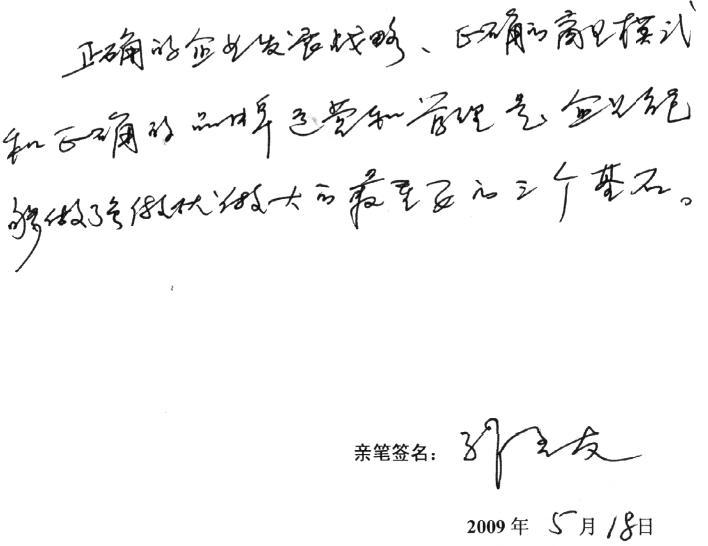 正确的企业发展战略、正确的商业模式
和正确的品牌运营和管理是企业能
够做强做优做大的最重要的三个基石。
亲笔签名：
2009年 5月18日